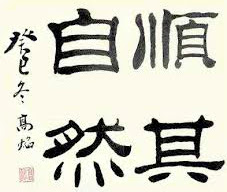 順其
自然
癸巳冬高焰